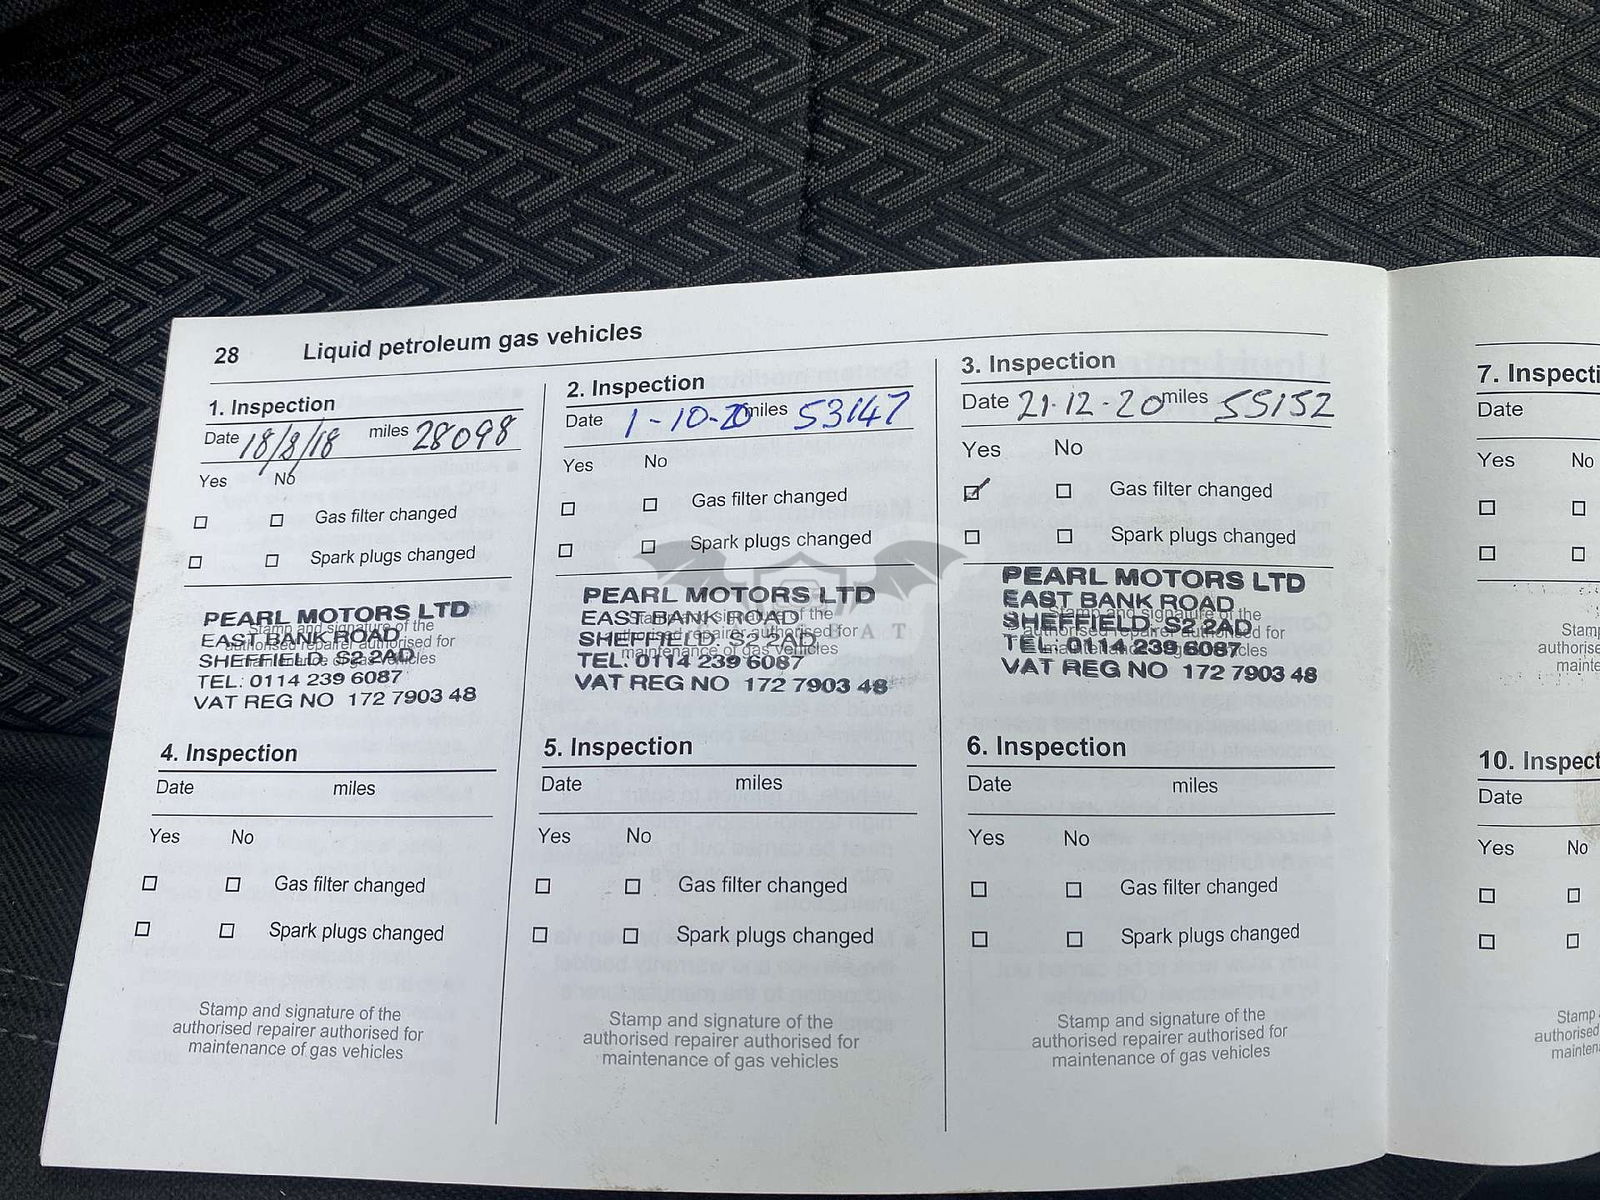 28 Liquid petroleum gas vehicles
1. Inspection
Date 18/8/18 miles 28098
Yes No
Gas filter changed
Spark plugs changed
PEARL MOTORS LTD
EAST BANK ROAD
SHEFFIELD. S2 2AD
TEL: 0114 239 6087
VAT REG NO 172 7903 48
Stamp and signature of the
authorised repairer authorised for
maintenance of gas vehicles
2. Inspection
Date 1-10-20 miles 53147
Yes No
Gas filter changed
Spark plugs changed
PEARL MOTORS LTD
EAST BANK ROAD
SHEFFIELD. S2 2AD
TEL: 0114 239 6087
VAT REG NO 172 7903 48
Stamp and signature of the
authorised repairer authorised for
maintenance of gas vehicles
3. Inspection
Date 21-12-20 miles 55152
Yes No
Gas filter changed
Spark plugs changed
PEARL MOTORS LTD
EAST BANK ROAD
SHEFFIELD. S2 2AD
TEL: 0114 239 6087
VAT REG NO 172 7903 48
Stamp and signature of the
authorised repairer authorised for
maintenance of gas vehicles
4. Inspection
Date miles
Yes No
Gas filter changed
Spark plugs changed
Stamp and signature of the
authorised repairer authorised for
maintenance of gas vehicles
5. Inspection
Date miles
Yes No
Gas filter changed
Spark plugs changed
Stamp and signature of the
authorised repairer authorised for
maintenance of gas vehicles
6. Inspection
Date miles
Yes No
Gas filter changed
Spark plugs changed
Stamp and signature of the
authorised repairer authorised for
maintenance of gas vehicles
7. Inspecti
Date
Yes No
Stamp
authorise
mainte
10. Inspect
Date
Yes No
Stamp
authorised
mainten